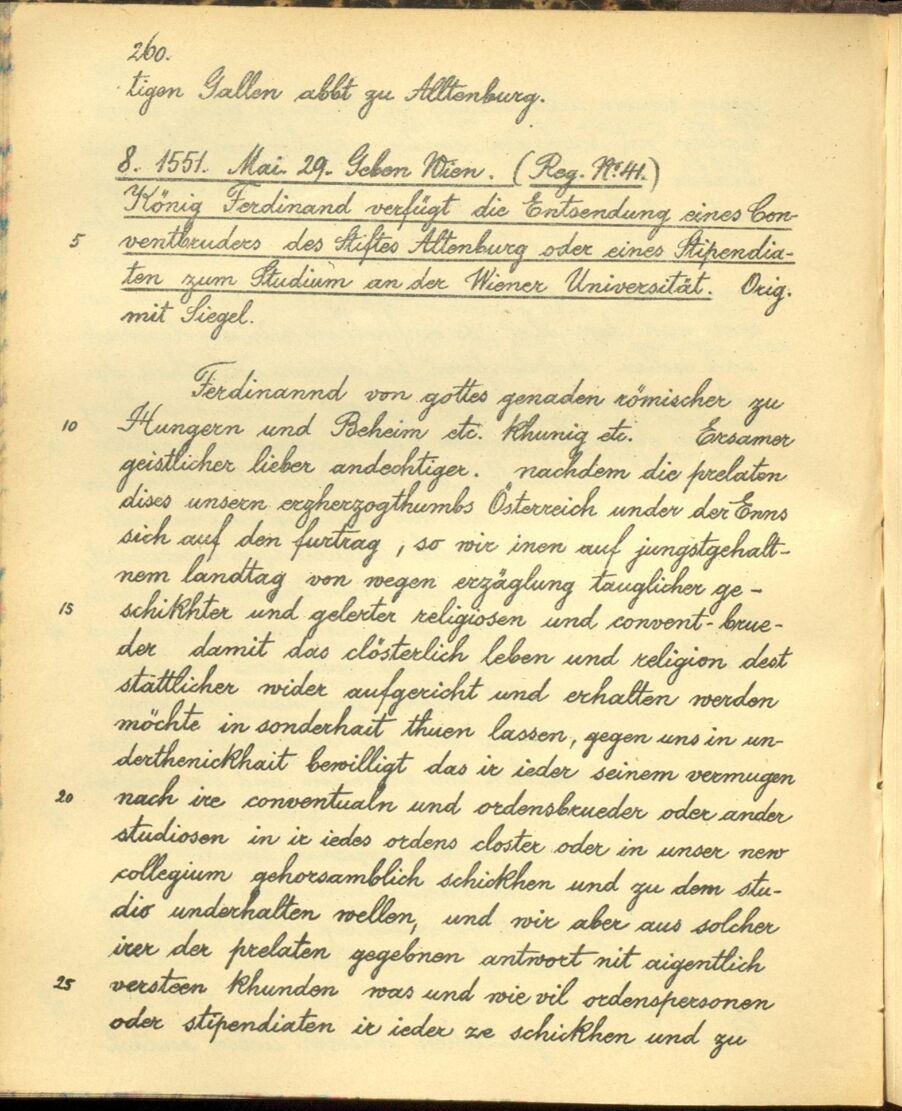 260.
tigen Gallen abbt zu Alltenburg.
8. 1551. Mai. 29. Geben Wien. (Reg. Nr. 41.)
König Ferdinand verfügt die Entsendung eines Con-
5 ventbruders des Stiftes Altenburg oder eines Stipendia-
ten zum Studium an der Wiener Universität. Orig.
mit Siegel.
Ferdinannd von gottes genaden römischer zu
10 Hungern und Beheim etc. khunig etc. Ersamer
geistlicher lieber andechtiger. nachdem die prelaten
dises unsern erzherzogthumbs Österreich under der Enns
sich auf den furtrag, so wir inen auf jungstgehalt-
nem landtag von wegen erzäglung tauglicher ge-
15 schikhter und gelerter religiosen und convent-brue-
der damit das clösterlich leben und religion dest
stättlicher wider aufgericht und erhalten werden
möchte in sonderhait thuen lassen, gegen uns in un-
derthenickhait bewilligt das ir ieder seinem vermugen
20 nach ire conventualn und ordensbrueder oder ander
studiosen in ir iedes ordens closter oder in unser new
collegium gehorsamblich schickhen und zu dem stu-
dio underhalten wellen, und wir aber aus solcher
irer der prelaten gegebnen antwort nit aigentlich
25 versteen khunden was und wie vil ordenspersonen
oder stipendiaten ir ieder ze schickhen und zu